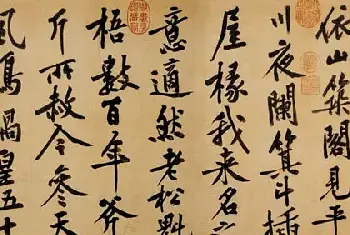 依山築閣見平
川夜闌箕斗插
屋椽我來名之
意適然老松魁
梧數百年斧
斤所赦今參天
風鳴媧皇五十